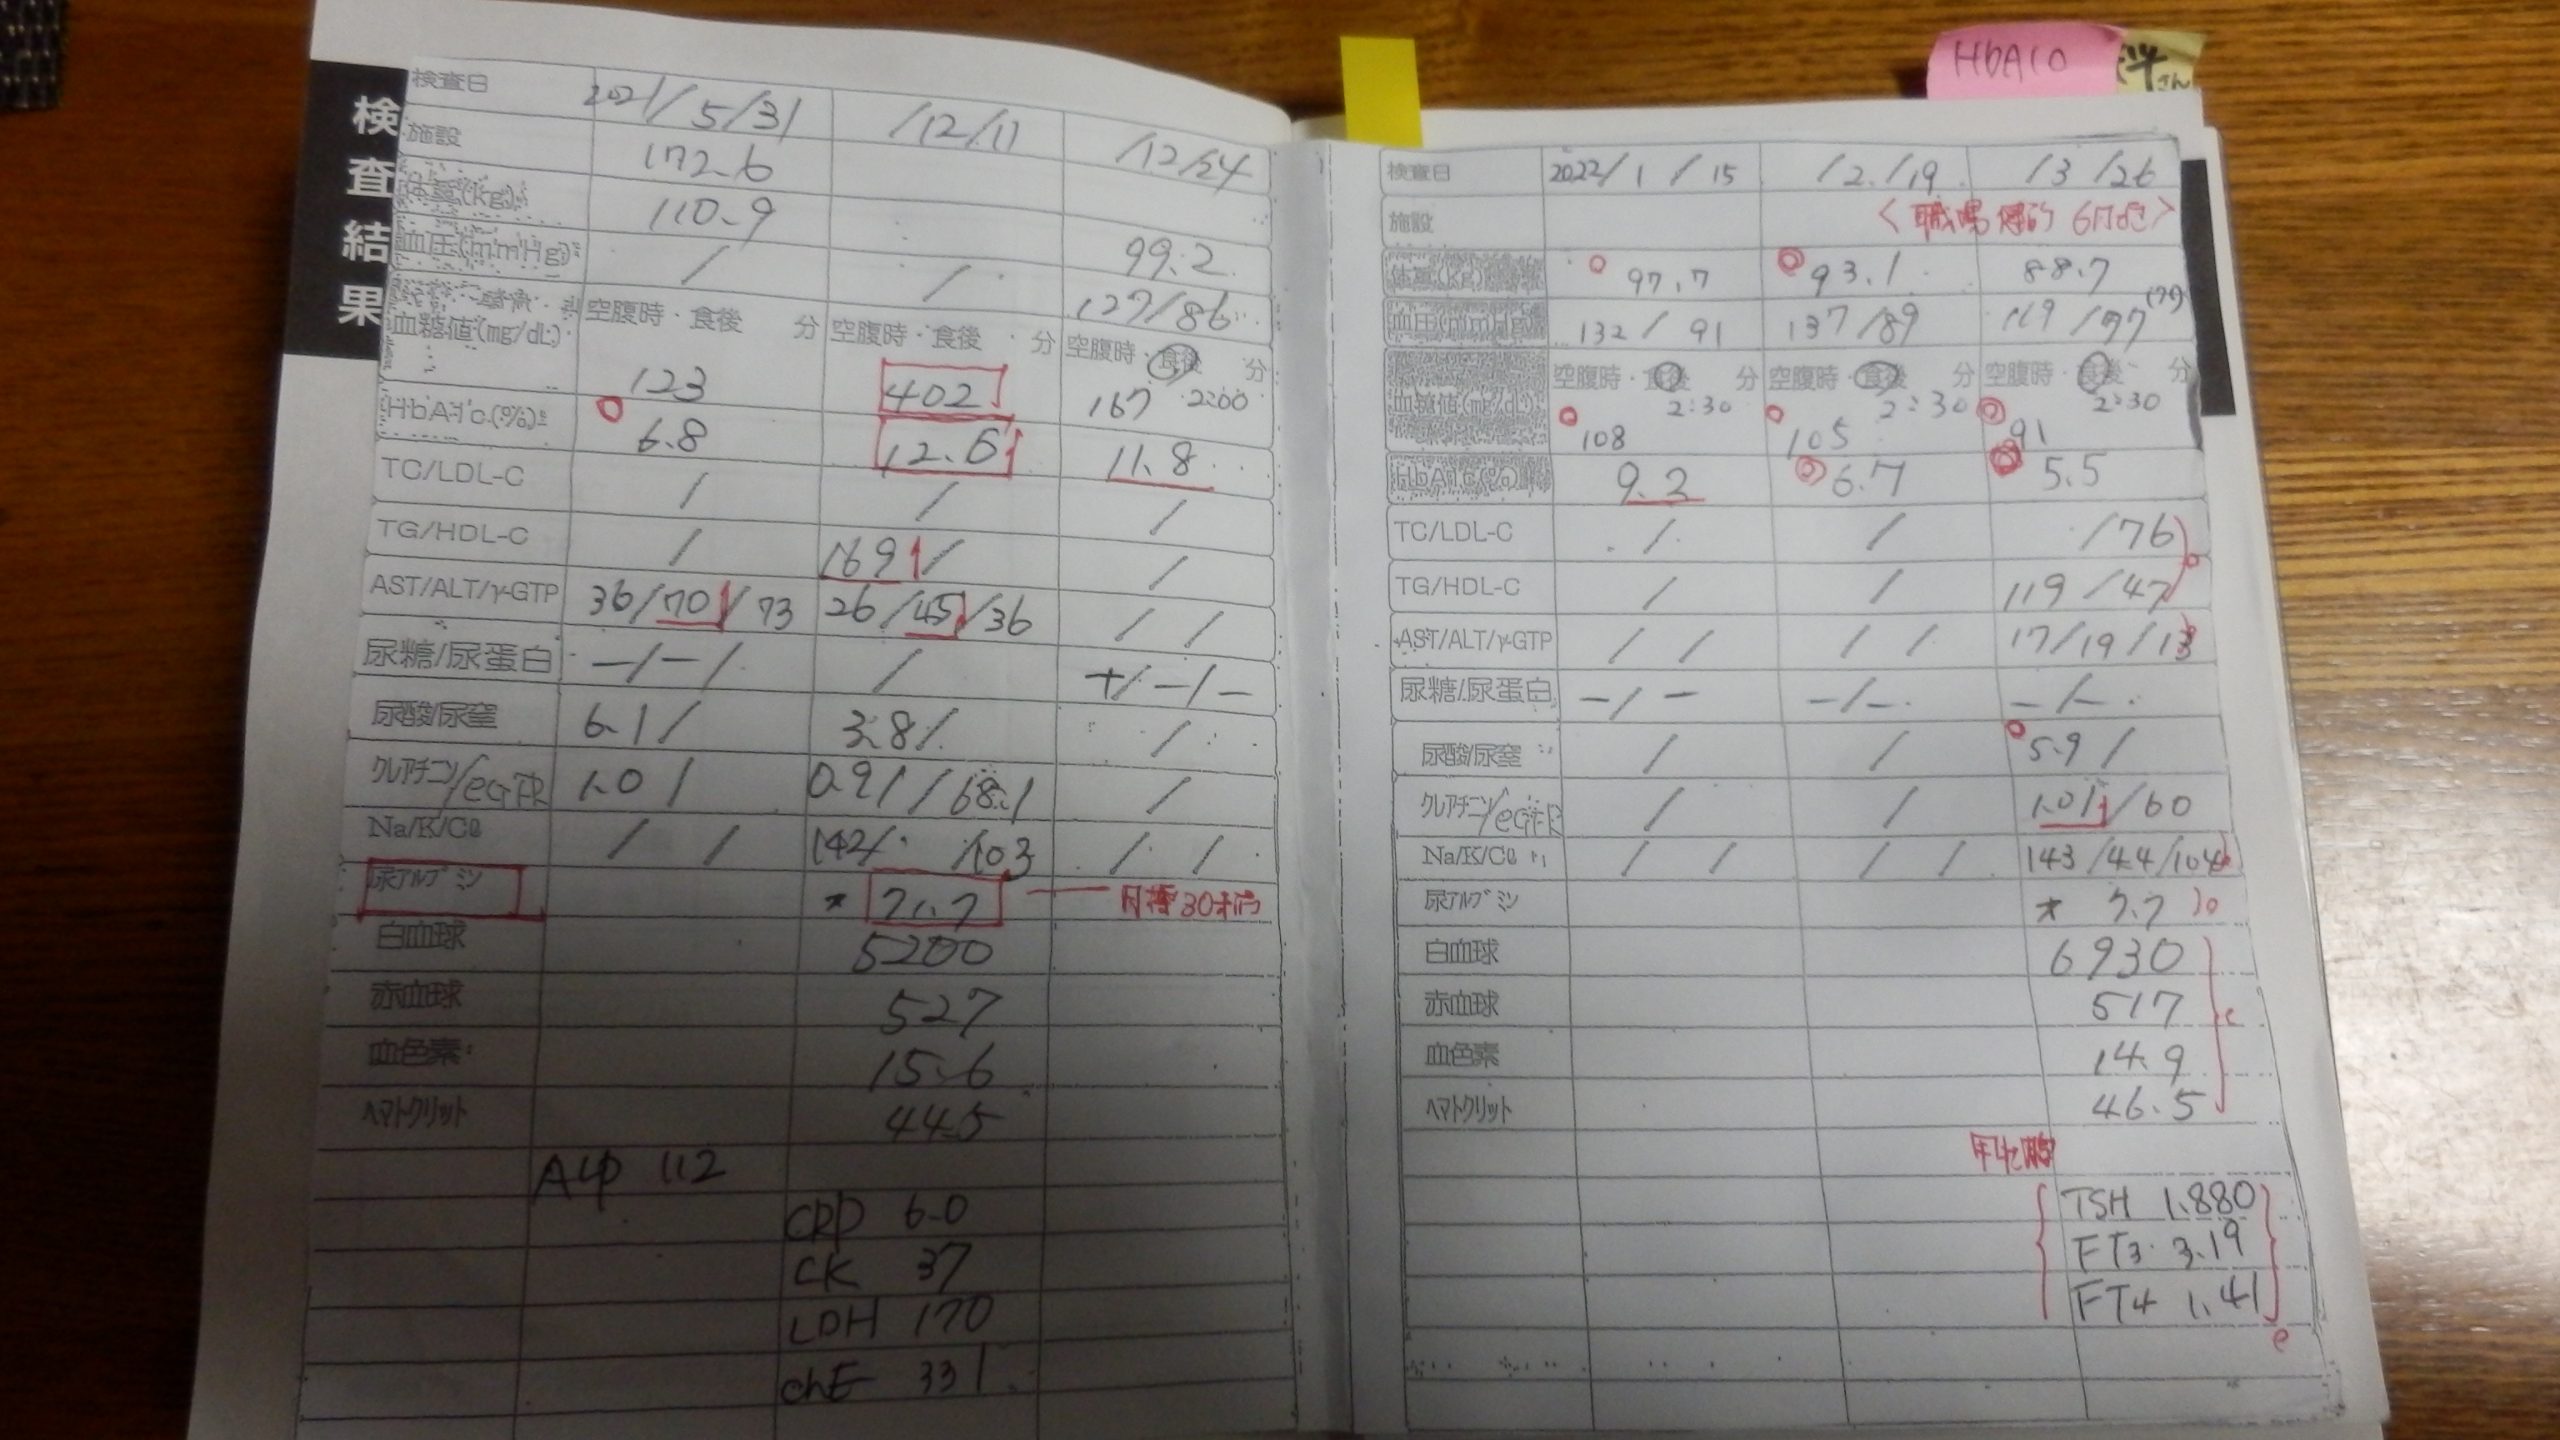 検査結果
検査日 2021/5/31 /12/11 /12/24
施設 172.6
体重(kg) 110.9 99.2
血圧(mmHg) / / 127/86
血糖値(mg/dL) 空腹時・食後 分 空腹時・食後 分 空腹時・食後 分
123 402 167 2:00
HbA1c(%) 6.8 12.6 11.8
TC/LDL-C / / /
TG/HDL-C / 169/ /
AST/ALT/γ-GTP 36/70/73 26/45/36 / /
尿糖/尿蛋白 -/-/ / +/-/-
尿酸/尿窒 6.1/ 3.8/ /
クレアチニン/eGFR 1.0/ 0.91/68.1 /
Na/K/Cl / / 142/ /103 / /
尿アルブミン * 目標30未満
白血球 5200
赤血球 527
血色素 15.6
ヘマトクリット 44.5
ALP 112
CRP 6.0
CK 37
LDH 170
ChE 331
HbA1c
さん
検査日 2022/1/15 /2/19 /3/26
施設
体重(kg) 97.7 93.1 88.7
血圧(mmHg) 132/91 137/89
血糖値(mg/dL) 空腹時・食後 分 空腹時・食後 分 空腹時・食後 分
2:30 2:30 2:30
108 105 91
HbA1c(%) 9.2 6.7 5.5
TC/LDL-C / / /76
TG/HDL-C / / 119/47
AST/ALT/γ-GTP / / / / 17/19/13
尿糖/尿蛋白 -/- -/- -/-
尿酸/尿窒 / / 5.9/
クレアチニン/eGFR / / 1.01/60
Na/K/Cl / / / / 143/4.4/104
尿アルブミン * 7.7
白血球 6930
赤血球 517
血色素 14.9
ヘマトクリット 46.5
甲状腺
TSH 1.880
FT3 3.19
FT4 1.41